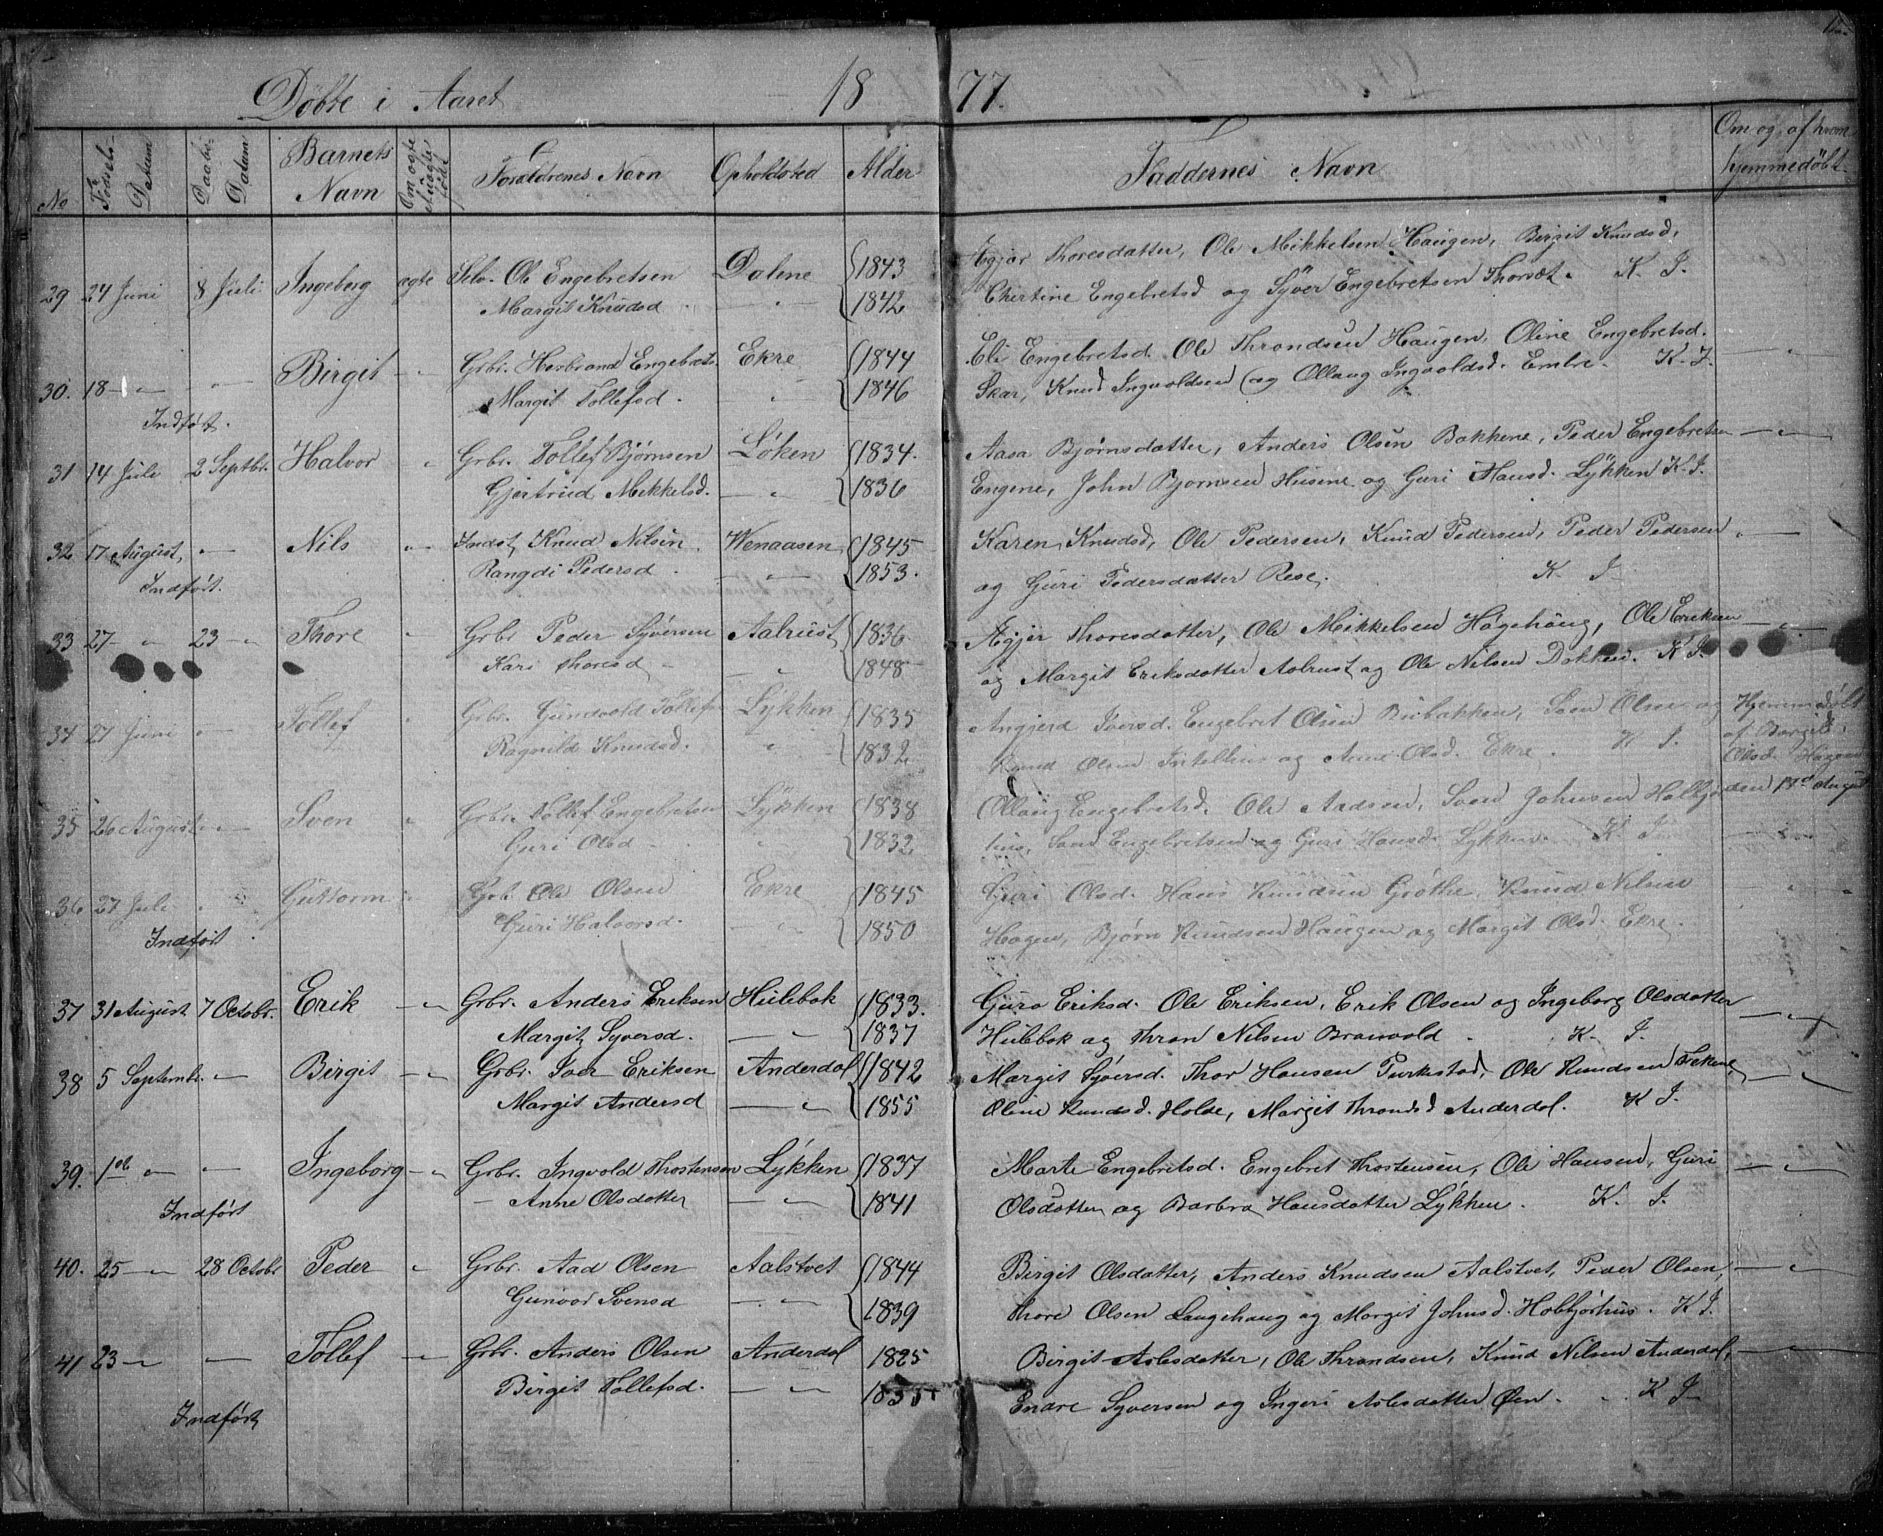 Döbte i Aaret 1877.
No Födsels Datum Daabs Datum Barnets Navn Om ægte uægte født Forældrenes Navn Opholdsted Alder Faddernes Navn Om og af hvem hjemmedöbt
Selv. Ole Engebretsen Dalene 1843 Thoresdatter, Ole Mikkelsen Haugen, Birgit Knudsd,
29 24 Juni 8 Juli Ingeborg ægte Margit Knudsd 1842 Engebretsd og Syver Engebretsen K. J.
Grbr. Herbrand Engebrets. Ekre 1844 Eli Engebretsd. Ole Throndsen Haugen, Oline Engebretsd.
30. 18 — — Birgit — Margit Tollefsd. 1846 Skar, Knud Ingvoldsen og Ollaug Ingvoldsd. K. J.
Indfört.
Grbr. Tollef Bjørnsen Løken 1834. Aasa Bjørnsdatter, Anders Olsen Bakkene, Peder Engebretsen
31 14 Juli 2 Septbr. Halvor Gjertrud Mikkelsd. — 1836 Engene, John Bjørnsen Husene og Guri Hansd. Lÿkken K. J.
32 17 August, — Nils Indst Knud Nilsen Wenaasen 1845 Karen Knudsd, Ole Pedersen, Knud Pedersen, Peder Pedersen
Indfört. Rangdi Pedersd. — 1853. og Guri Pedersdatter K. J.
33 27 — 23 — Thore Grbr Peder Syversen Aalrust 1836 Thoresdatter, Ole Mikkelsen Høgehaug, Ole Eriksen
Kari Thoresd — 1848 og Margit Eriksdatter Aalrust og Ole Nilsen K. J.
34 27 Juni Tollef Grbr. Gundvold Tollefs Lÿkken 1835 Angjerd Iversd. Engebret Olsen Sven Olsen og Hjemmedöbt
Ragnild Knudsd. 1832 Knud Olsen og Anne Olsd. Ekre. K. J. af Bargit Olsd. Hagen
35 26 August — Sven Grbr. Tollef Engebretsen Lÿkken 1838 Ollaug Engebretsd. Ole Sven Johnsen den August
Guri Olsd 1832 Engebretsen og Guri Hansd. Lykken K. J.
36 27 Juli Guttorm Grbr Ole Olsen Ekre 1845 Guri Olsd. Hans Knudsen Gröthe, Knud Nilsen
Indfört. Guri Halvorsd. — 1850 Hagen, Bjørn Knudsen Haugen og Margit Olsd. Ekre.
37 31 August 7 Octobr. Erik — Grbr. Anders Eriksen Hulebok 1833. Guro Eriksd. Ole Eriksen, Erik Olsen og Ingeborg Olsdatter
Margit Syversd. — 1837 Hulebok og Thron Nilsen K. J.
38 5 Septembr. — Birgit — Grbr. Iver Eriksen Anderdal 1842 Margit Syversd. Thor Hansen Ole Knudsen
Margit Andersd — 1855 Oline Knudsd. Holde, Margit Throndsd Anderdal. K. J.
39. 1ste — — Ingeborg — Grbr. Ingvold Thostensen Lÿkken 1837 Marte Engebretsd. Engebret Thostensen, Ole Hansen, Guri
Indfört Anne Olsdatter — 1841 Olsdatter og Barbra Hansdatter Lÿkken. K. J.
40. 25 — 28 Octobr Peder Grbr. Aad Olsen Aalstvet 1844 Birgit Olsdatter, Anders Knudsen Aalstvet, Peder Olsen,
Gunvor Svensd — 1839 Thore Olsen Langehaug og Margit Johnsd. K. J.
41 23 — — Tollef — Grbr. Anders Olsen Anderdal 1825 Birgit Aslesdatter, Ole Throndsen, Knud Nilsen Anderdal,
Birgit Tollefsd. — 1835 Endre Syversen og Ingeri Aslesdatter Øen. K. J.
Indfört